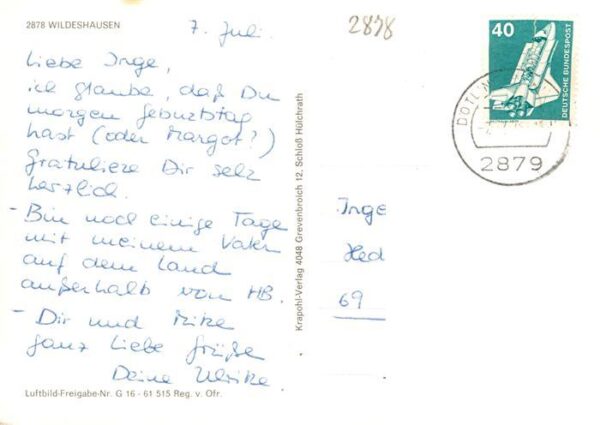 2878 WILDESHAUSEN
7. Juli.
Liebe Inge,
ich glaube, daß Du
morgen Geburtstag
hast (oder Margot?)
Gratuliere Dir sehr
herzlich.
- Bin noch einige Tage
mit meinem Vater
auf dem Land
außerhalb von HB.
- Dir und Mike
ganz liebe Grüße
Deine Ulrike.
Luftbild-Freigabe-Nr. G 16 - 61 515 Reg. v. Ofr.
Krapohl-Verlag 4048 Grevenbroich 12, Schloß Hülchrath
2878
40
DEUTSCHE BUNDESPOST
2879
Inge
Hed
69